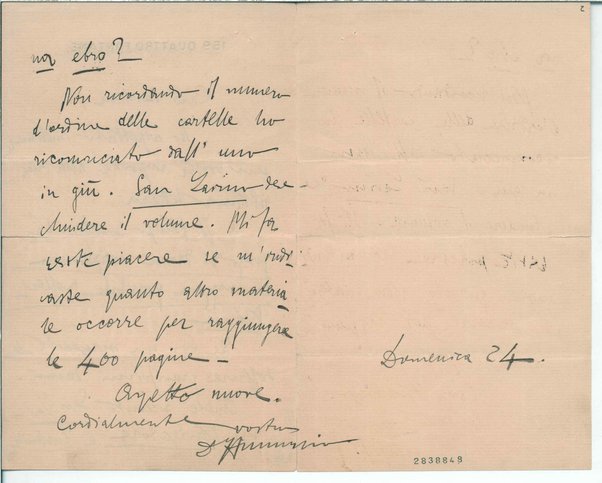 non ebro?
Non ricordando il numero
d'ordine delle cartelle ho
ricominciato dall' uno
in giù. San Larino dee
chiudere il volume. Mi fa
reste piacere se m'indi
caste quanto altro materia
le occorre per raggiungere
le 400 pagine –
Aspetto nuove.
Cordialmente vostro
Domenica 24.
2838849
2